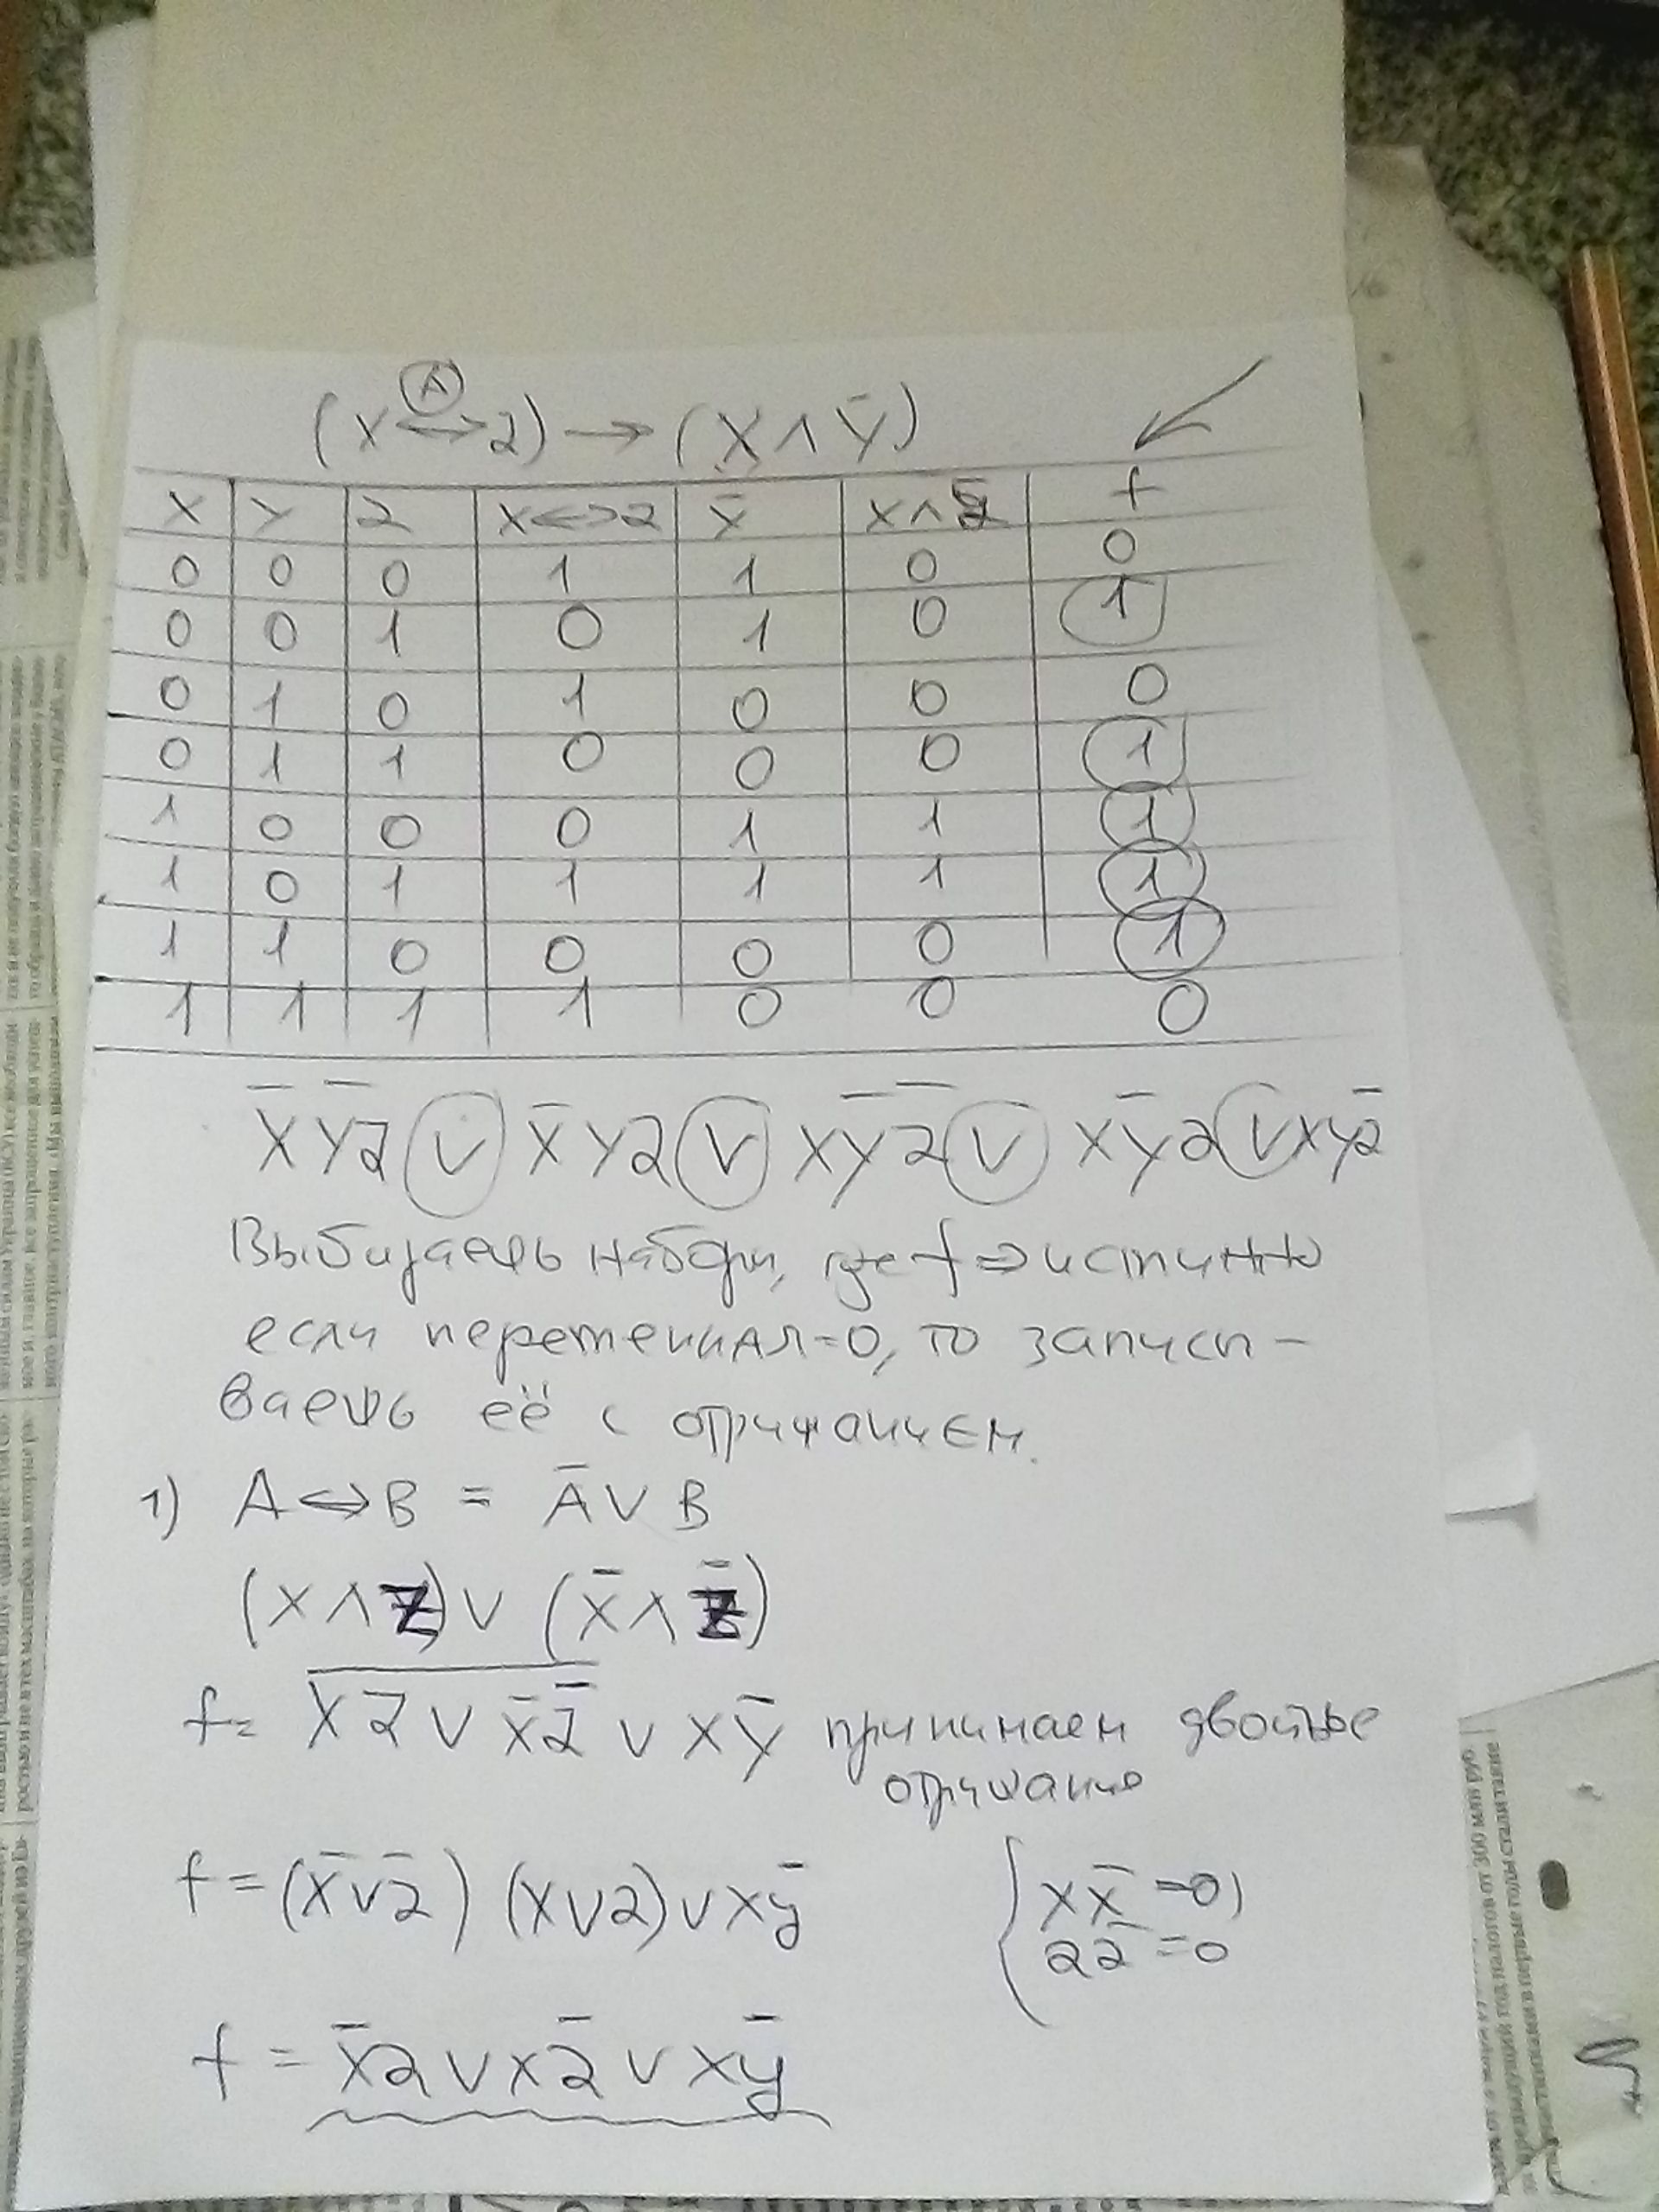 (x ⟷ z) → (x ∧ ȳ)
A
x y z x<=>z ȳ x∧ȳ f
0 0 0 1 1 0 0
0 0 1 0 1 0 1
0 1 0 1 0 0 0
0 1 1 0 0 0 1
1 0 0 0 1 1 1
1 0 1 1 1 1 1
1 1 0 0 0 0 1
1 1 1 1 0 0 0
x̄ȳz ∨ x̄yz ∨ xȳz̄ ∨ xȳz ∨ xyz̄
Выбираешь наборы, где f => истинно
если переменная=0, то записы-
ваешь её с отрицанием.
1) A <=> B = Ā ∨ B
(x ∧ z) ∨ (x̄ ∧ z̄)
f = \overline{xz ∨ x̄z̄} ∨ xȳ принимаем двойное
отрицание
f = (x̄ ∨ z̄) (x ∨ z) ∨ xȳ
{ xx̄ = 0)
zz̄ = 0
f = x̄z ∨ xz̄ ∨ xȳ